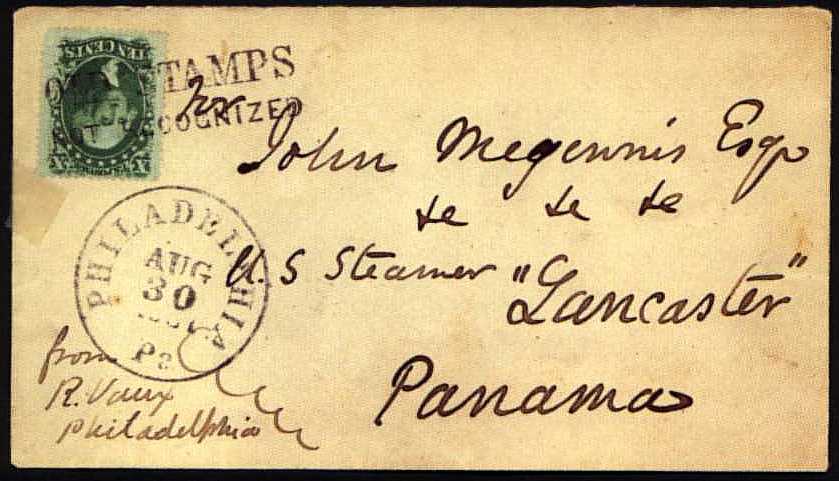 TEN CENTS
OLD STAMPS
NOT RECOGNIZED
For
John Megennis Esqr
&c &c &c
U.S Steamer "Lancaster"
Panama
PHILADELPHIA
AUG
30
Pa
from
R. Vaux
Philadelphia